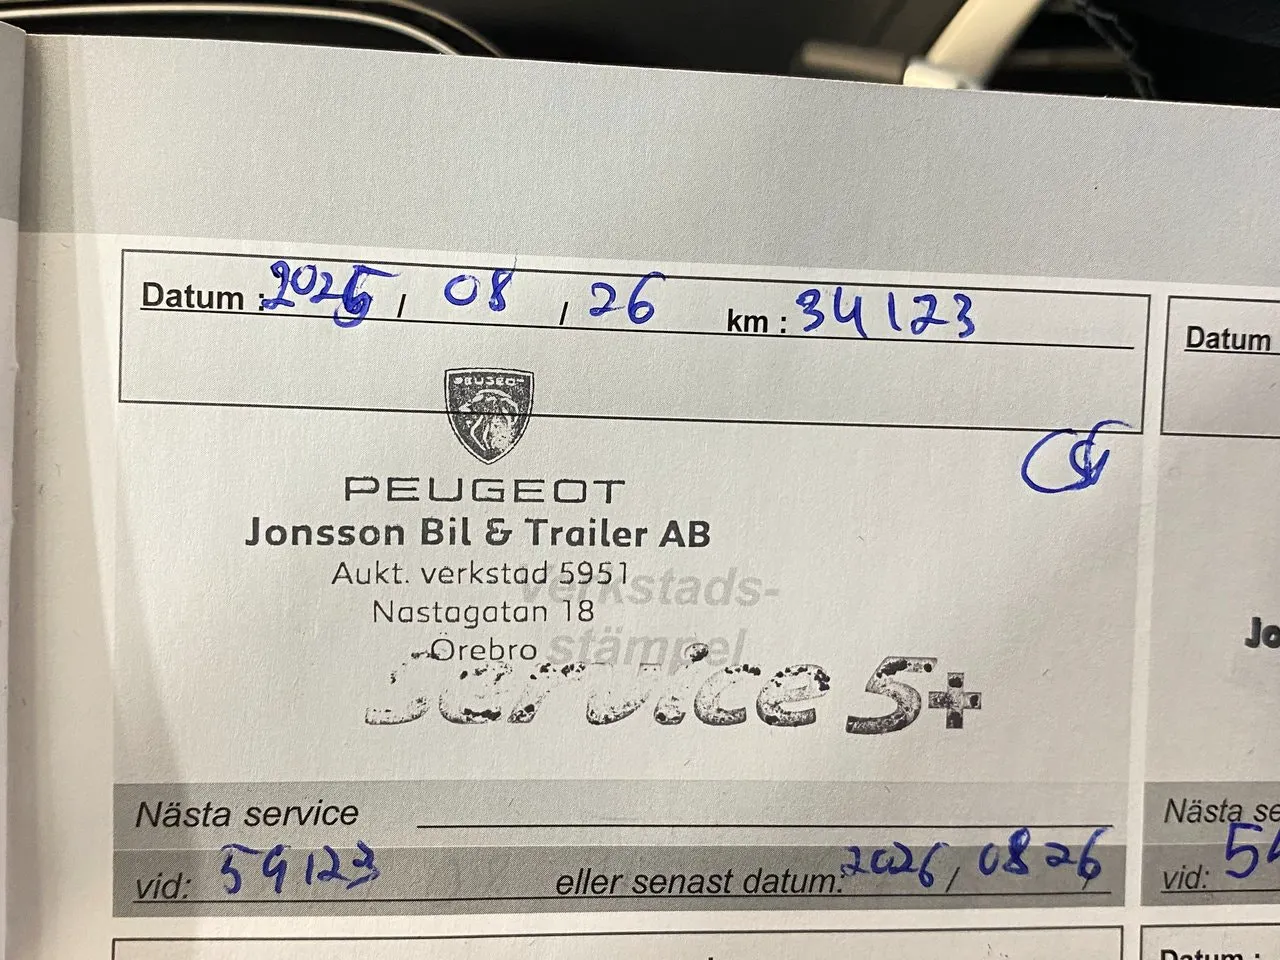 Datum : 2025 / 08 / 26 km : 34123
PEUGEOT
PEUGEOT
Jonsson Bil & Trailer AB
Aukt. verkstad 5951
Nastagatan 18
Örebro
Verkstads-
stämpel
Service 5+
Nästa service
vid: 59123 eller senast datum: 2026 / 08 26
Datum
Jo
Nästa se
vid: 54
Datum :